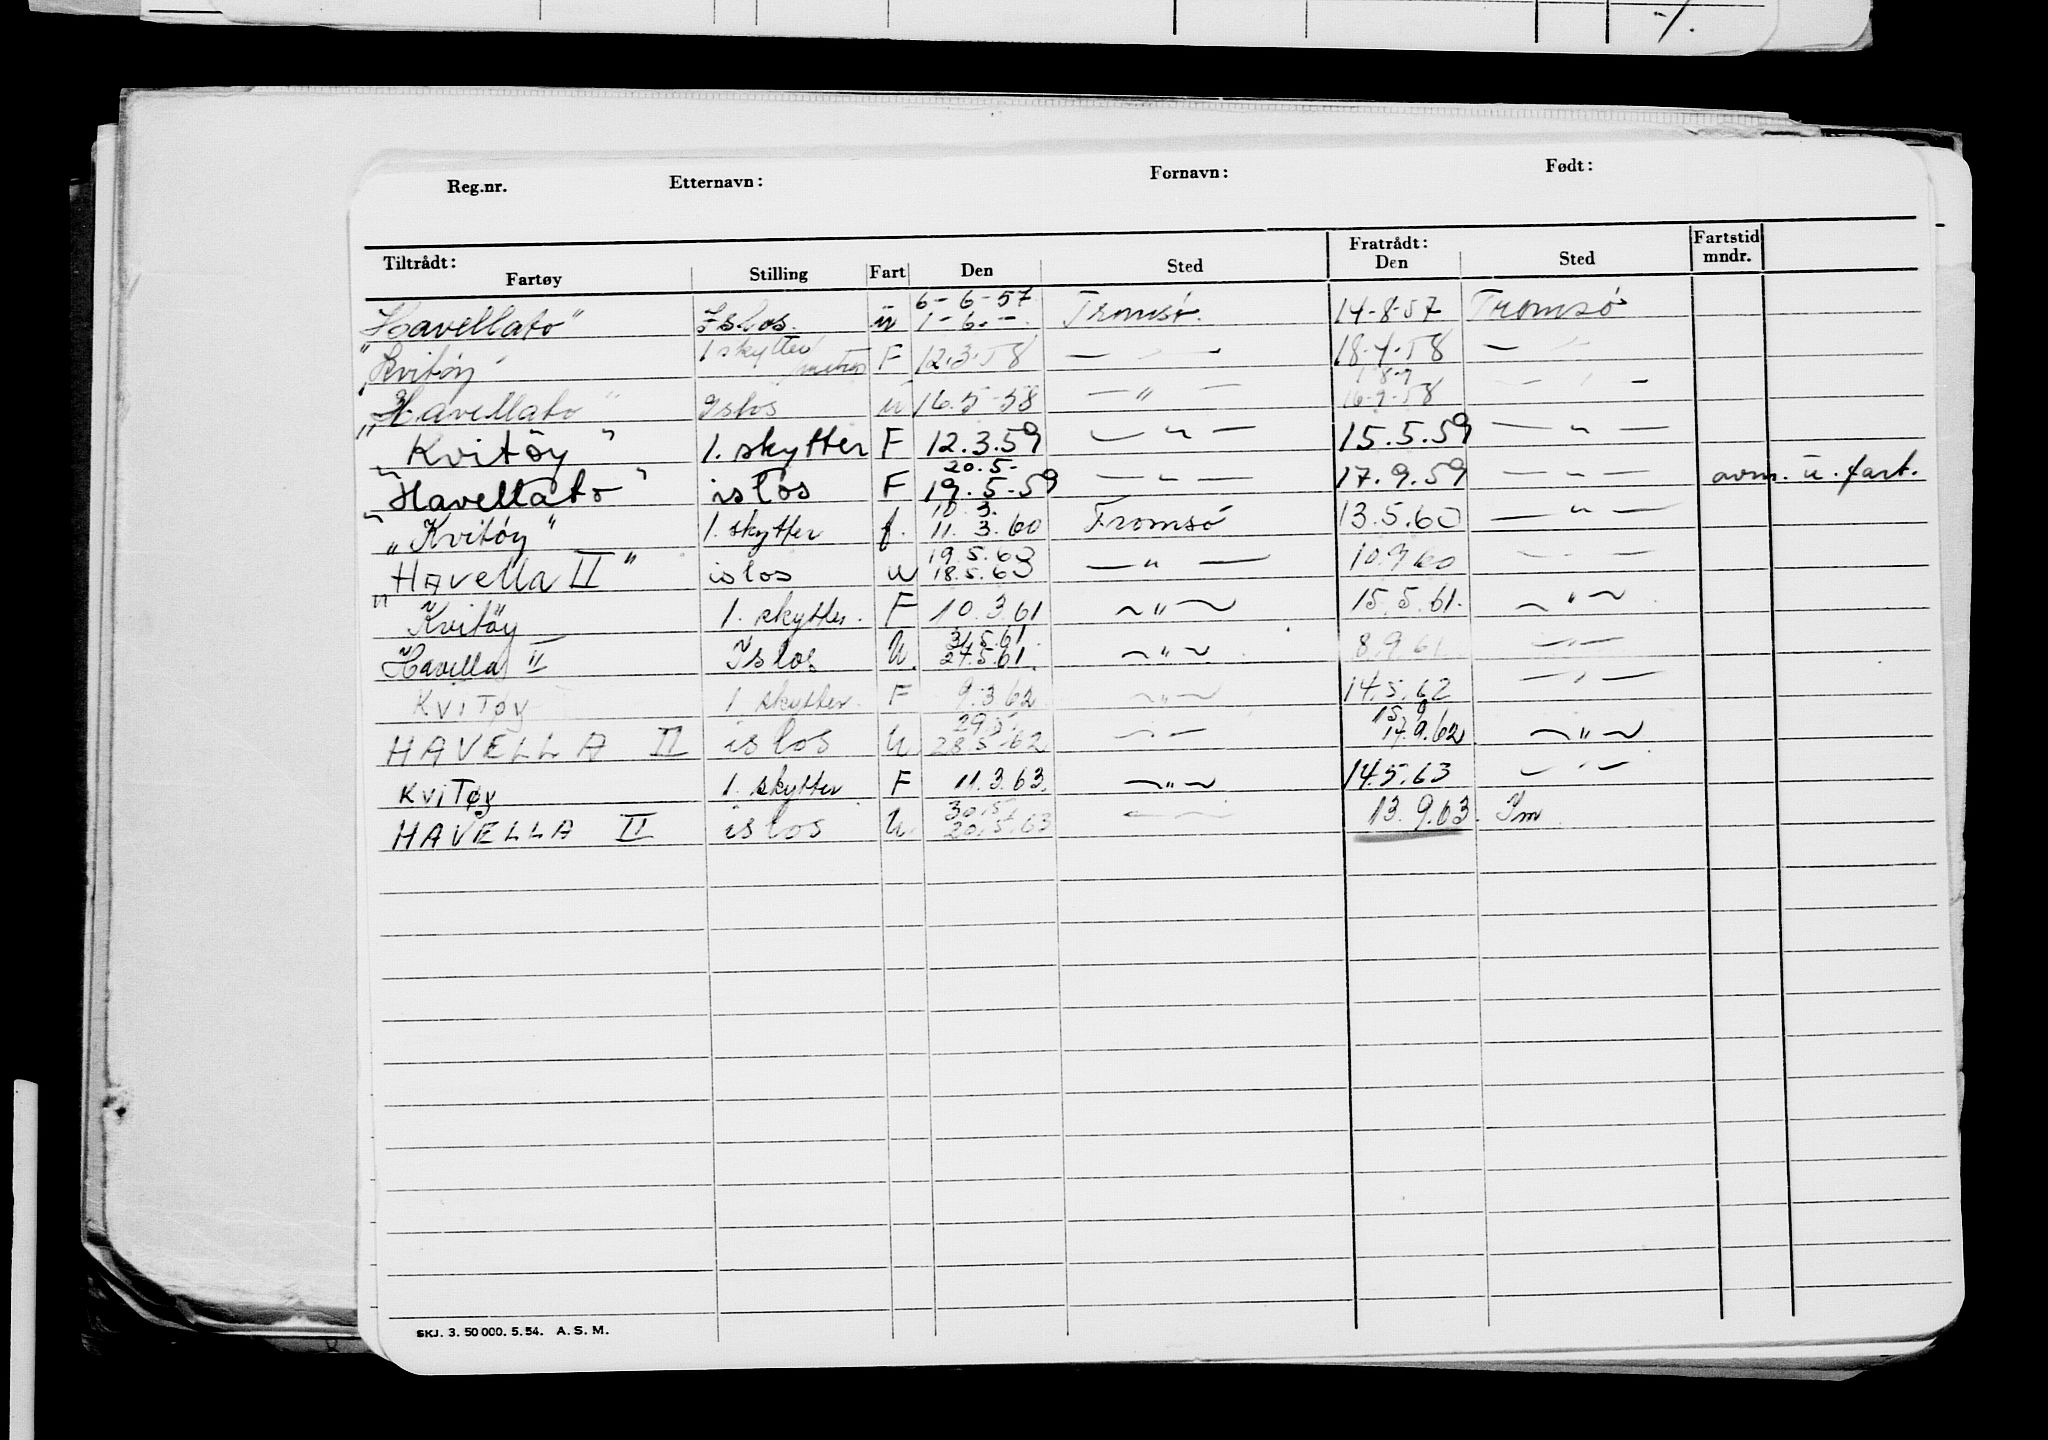 Reg.nr. Etternavn: Fornavn: Født:
Tiltrådt: Fratrådt: Fartstid
Fartøy Stilling Fart Den Sted Den Sted mndr.
6-6-57
"Havellato" Islos. u 1-6.- Tromsø. 14-8-57 Tromsø
"Kvitøy" 1 skytter F 12.3.58 — " — 18.4.58 — " —
"Havellato" Islos u 16.5-58 — " — 16-9-58 — " —
"Kvitøy" 1. skytter F 12.3.59 — " — 15.5.59 — " —
20.5-
"Havellato" islos F 19.5-59 — " — 17.9.59 — " — avm. ū. fart.
10.3.
"Kvitøy" 1. skytter f. 11.3.60 Tromsø 13.5.60 — " —
19.5.60
"HAvella II" islos u 18.5.60 — " — 10.9.60 — " —
"Kvitøy 1. skytter. F 10.3.61 — " — 15.5.61. — " —
31.5.61.
"Havella II Islos U. 27.5.61. — " — 8.9.61 — " —
KViTØy 1 skytter. F 9.3.62 — " — 14.5.62 — " —
29.5. 15.9
HAVELLA II islos U 28.5.62 — " — 17.9.62 — " —
KViTØy 1. skytter F 11.3.63. — " — 14.5.63 — " —
30.5.
HAVELLA II islos U. 20.5.63 — " — 13.9.63. Tm
SKJ. 3. 50 000. 5. 54. A. S. M.